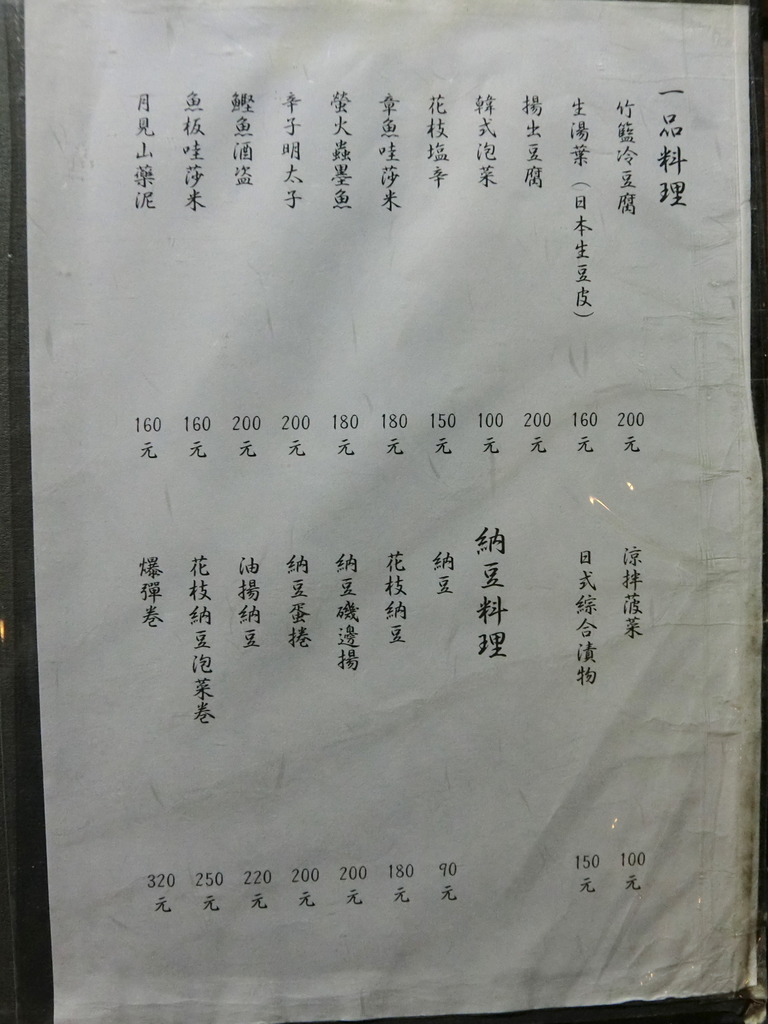 一品料理
竹籃冷豆腐 200元
生湯葉（日本生豆皮） 160元
揚出豆腐 200元
韓式泡菜 100元
花枝塩辛 150元
章魚哇莎米 180元
螢火蟲墨魚 180元
辛子明太子 200元
鰹魚酒盗 200元
魚板哇莎米 160元
月見山藥泥 160元
涼拌菠菜 100元
日式綜合漬物 150元
納豆料理
納豆 90元
花枝納豆 180元
納豆磯邊揚 200元
納豆蛋捲 200元
油揚納豆 220元
花枝納豆泡菜卷 250元
爆彈卷 320元